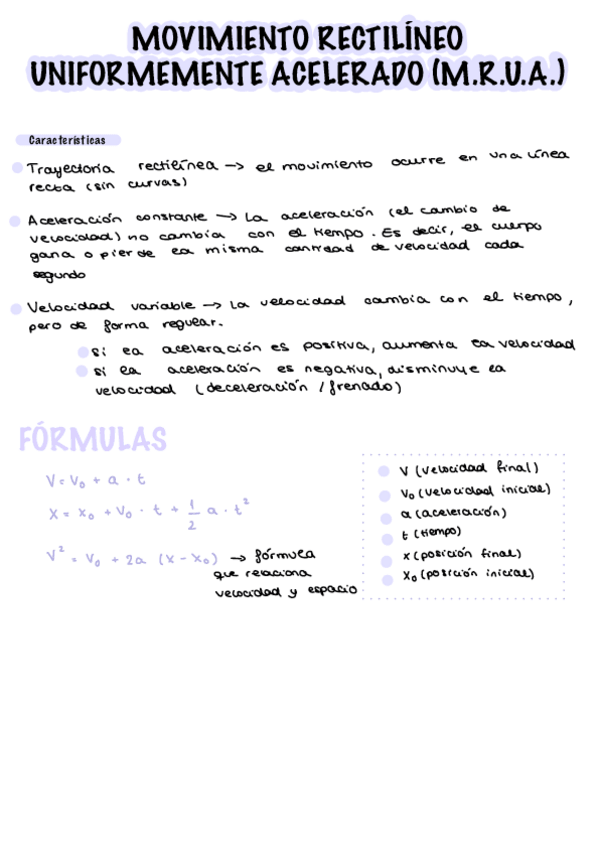 MOVIMIENTO RECTILÍNEO
UNIFORMEMENTE ACELERADO (M.R.U.A.)
Características
Trayectoria rectilínea → el movimiento ocurre en una línea
recta (sin curvas)
Aceleración constante → La aceleración (el cambio de
velocidad) no cambia con el tiempo. Es decir, el cuerpo
gana o pierde la misma cantidad de velocidad cada
segundo
Velocidad variable → La velocidad cambia con el tiempo,
pero de forma regular.
si la aceleración es positiva, aumenta la velocidad
si la aceleración es negativa, disminuye la
velocidad (deceleración / frenado)
FÓRMULAS
V = V₀ + a · t
X = x₀ + V₀ · t + 1/2 a · t²
V² = V₀ + 2a (x - x₀) → fórmula
que relaciona
velocidad y espacio
V (velocidad final)
V₀ (velocidad inicial)
a (aceleración)
t (tiempo)
x (posición final)
X₀ (posición inicial)